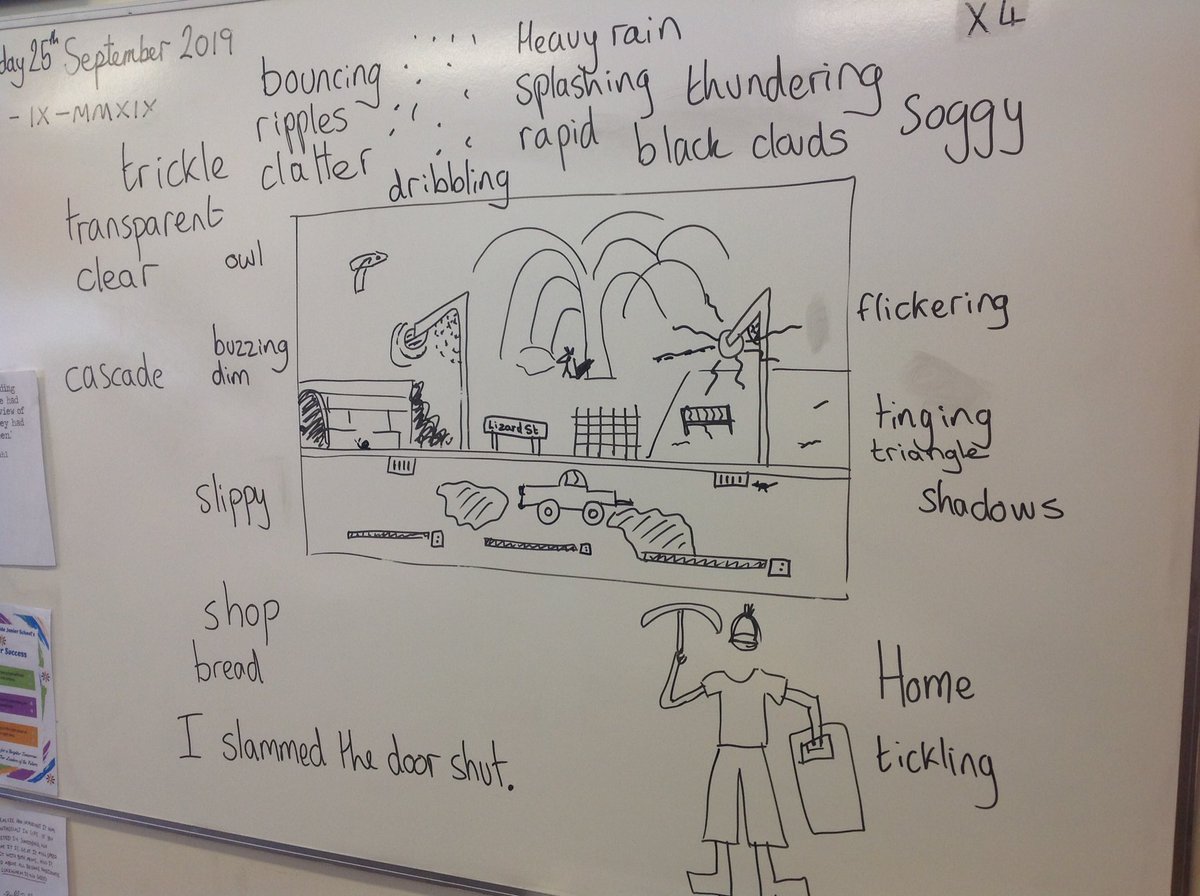 day 25th September 2019
- IX - MMXIX
X4
Heavy rain
bouncing
splashing thundering
ripples
rapid
black clouds
soggy
trickle
clatter
dribbling
transparent
clear
owl
flickering
buzzing
dim
cascade
Lizard St
tinging
triangle
slippy
shadows
shop
bread
Home
tickling
I slammed the door shut.
ding
had
view of
ey had
Junior School's
Success